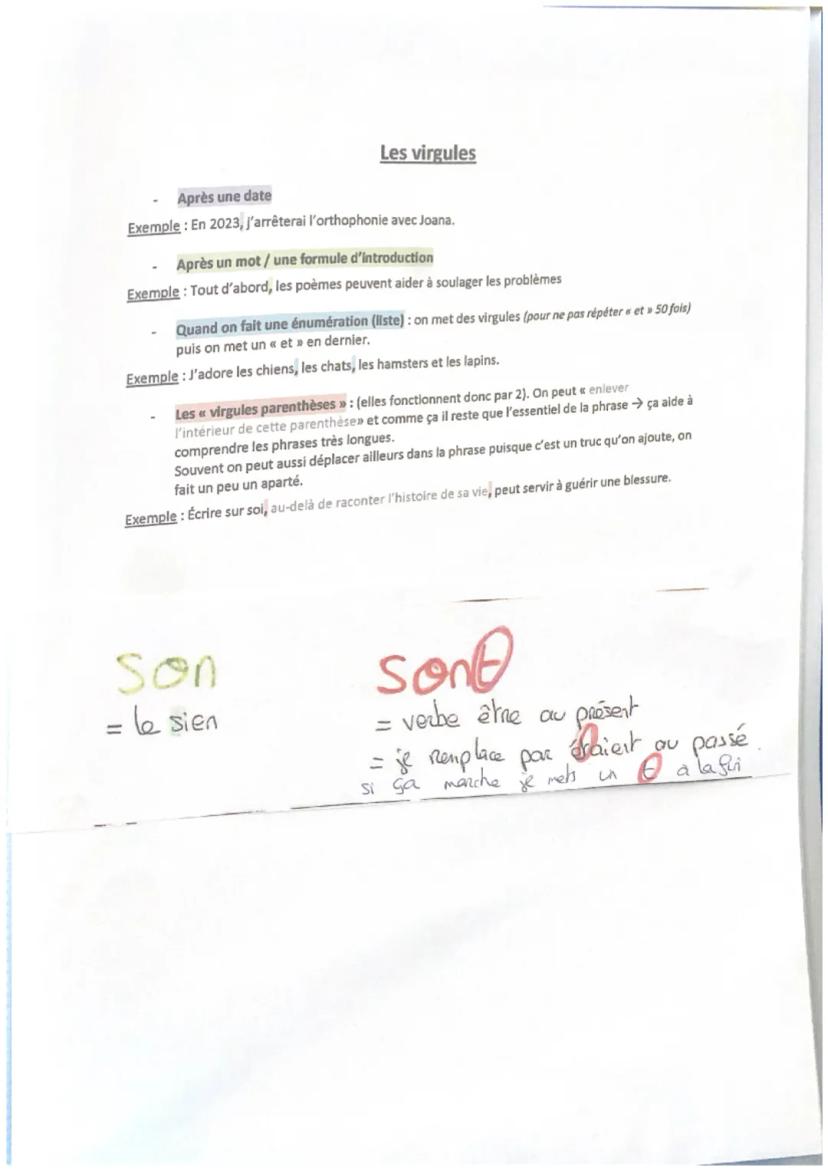 Les virgules
- Après une date
Exemple : En 2023, j'arrêterai l'orthophonie avec Joana.
- Après un mot / une formule d'introduction
Exemple : Tout d'abord, les poèmes peuvent aider à soulager les problèmes
- Quand on fait une énumération (liste) : on met des virgules (pour ne pas répéter « et » 50 fois)
puis on met un « et » en dernier.
Exemple : J'adore les chiens, les chats, les hamsters et les lapins.
- Les « virgules parenthèses » : (elles fonctionnent donc par 2). On peut « enlever
l'intérieur de cette parenthèse» et comme ça il reste que l'essentiel de la phrase → ça aide à
comprendre les phrases très longues.
Souvent on peut aussi déplacer ailleurs dans la phrase puisque c'est un truc qu'on ajoute, on
fait un peu un aparté.
Exemple : Écrire sur soi, au-delà de raconter l'histoire de sa vie, peut servir à guérir une blessure.
son sont
= le sien = verbe être au présent
= je remplace par étaient au passé.
si ça marche je mets un t à la fin